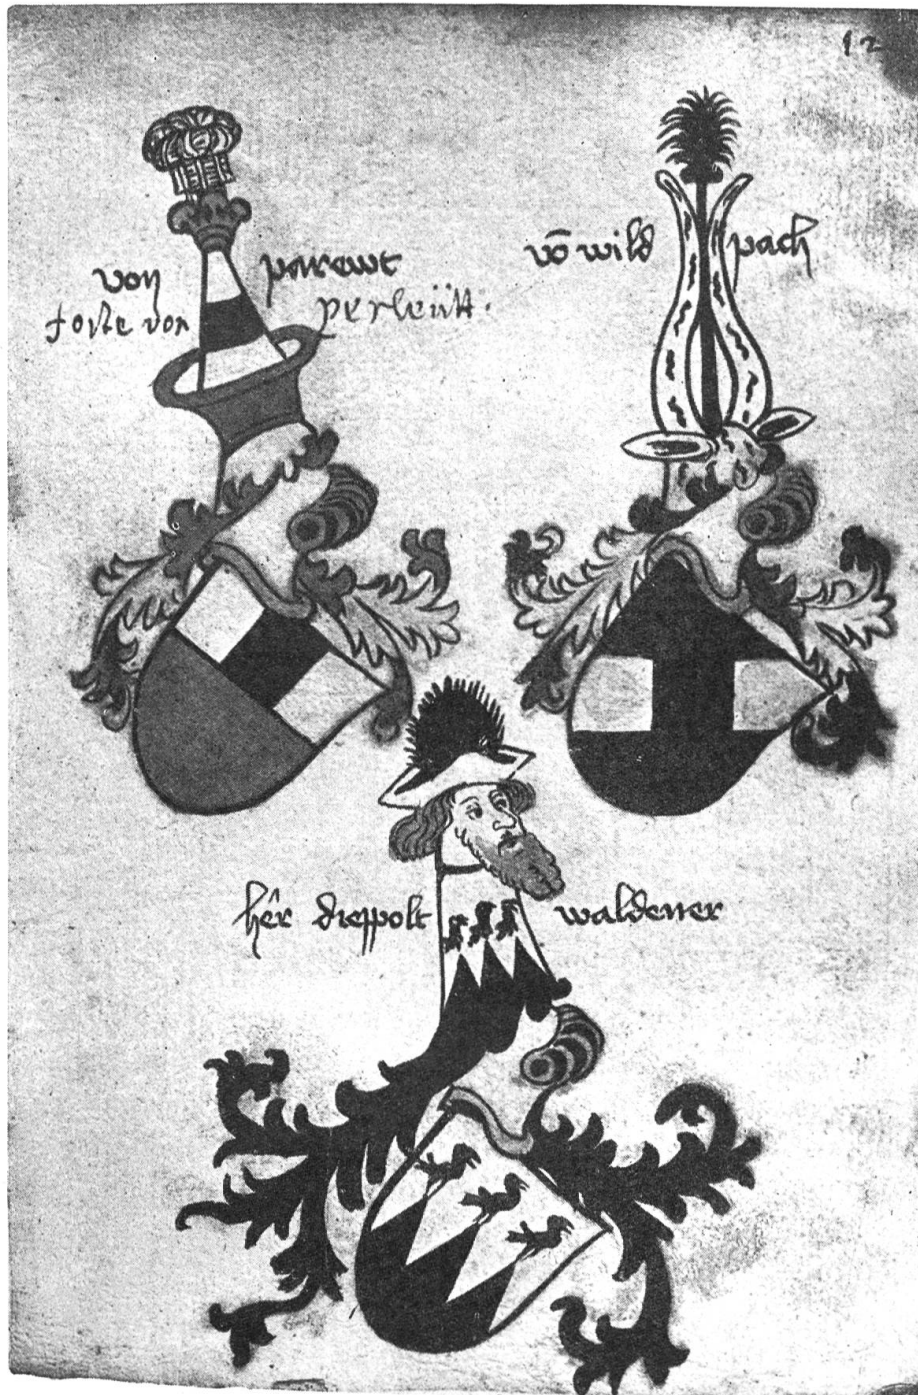 12
von parewt
von perleütt.
vō wild pach
hêr diepolt waldener